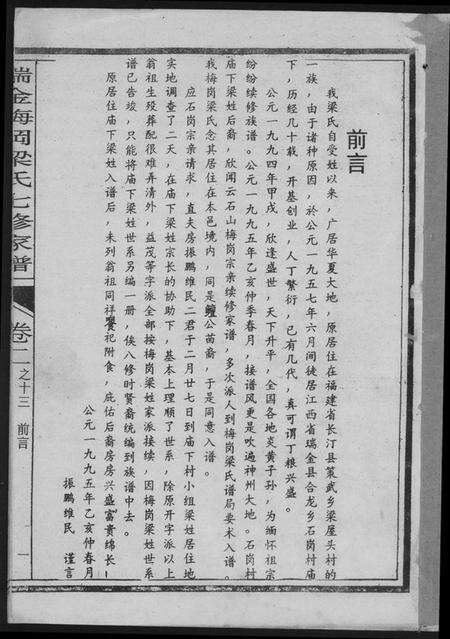 前言
我梁氏自受姓以来，广居华夏大地，原居住在福建省长汀县策武乡梁屋头村的
一族，由于诸种原因，於公元一九五七年六月间徒居江西省瑞金县合龙乡石岗村庙
下，历经几十载，开基创业，人丁繁衍，已有几代，真可谓丁粮兴盛。
公元一九九四年甲戌，欣逢盛世，天下升平，全国各地炎黄子孙，为缅怀祖宗
纷纷续修族谱。公元一九九五年乙亥仲季春月，接谱风更是吹遍神州大地。石岗村
庙下梁姓后裔，欣闻云石山梅岗宗亲续修家谱，多次派人到梅岗梁氏谱局要术入谱。
我梅岗梁氏念其居住在本邑境内，同是鳣公苗裔，于是同意入谱。
应石岗宗亲请求，直夫房振鹏维民二君于二月廿七日到庙下村小组梁姓居住地
实地调查了二天，在庙下梁姓宗长的协助下，基本上理顺了世系，除原开字派以上
翁祖生殁葬配很难弄清外，益茂等字派全部按梅岗梁姓家派接续，因梅岗梁姓世系
谱已告竣，只能将庙下梁姓世系另编一册，俟八修时贤裔统编到族谱中去。
原居住庙下梁姓入谱后，未列翁祖同祥飨祀附食，庇佑后裔房房兴盛富贵绵长！
公元一九九五年乙亥仲春月
振鹏维民 谨言
瑞金梅岗梁氏七修家谱 卷二之十三 前言 一